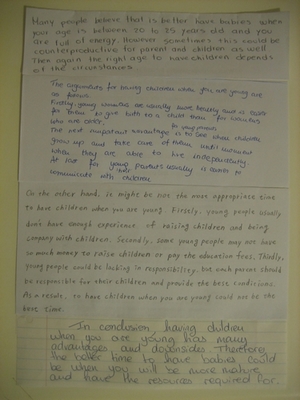 Many people believe that is better have babies when
your age is between 20 to 25 years old and you
are full of energy. However sometimes this could be
counterproductive for parent and children as well.
Then again the right age to have children depends
of the circumstances.
The arguments for having children when you are young are
as follows.
Firstly, young women are usually more healthy and is easier
for them to give birth to a child than for women
who are older.
The next important advantage is to see when children
grow up and take care of them until
when they are able to live independently
At last for young parents usually is easier to
communicate with children.
On the other hand, is might be not the most appropriate time
to have children when you are young. Firstly, young people usually
don't have enough experience of raising children and being
company with children. Secondly, some young people may not have
so much money to raise children or pay the education fees. Thirdly,
young people could be lacking in responsibility, but each parent should
be responsible for their children and provide the best conditions.
As a result, to have children when you are young could not be the
best time.
In conclusion, having children
when you are young has many
advantages and downsides. Therefore,
the better time to have babies could
be when you will be more mature
and have the resources required for.